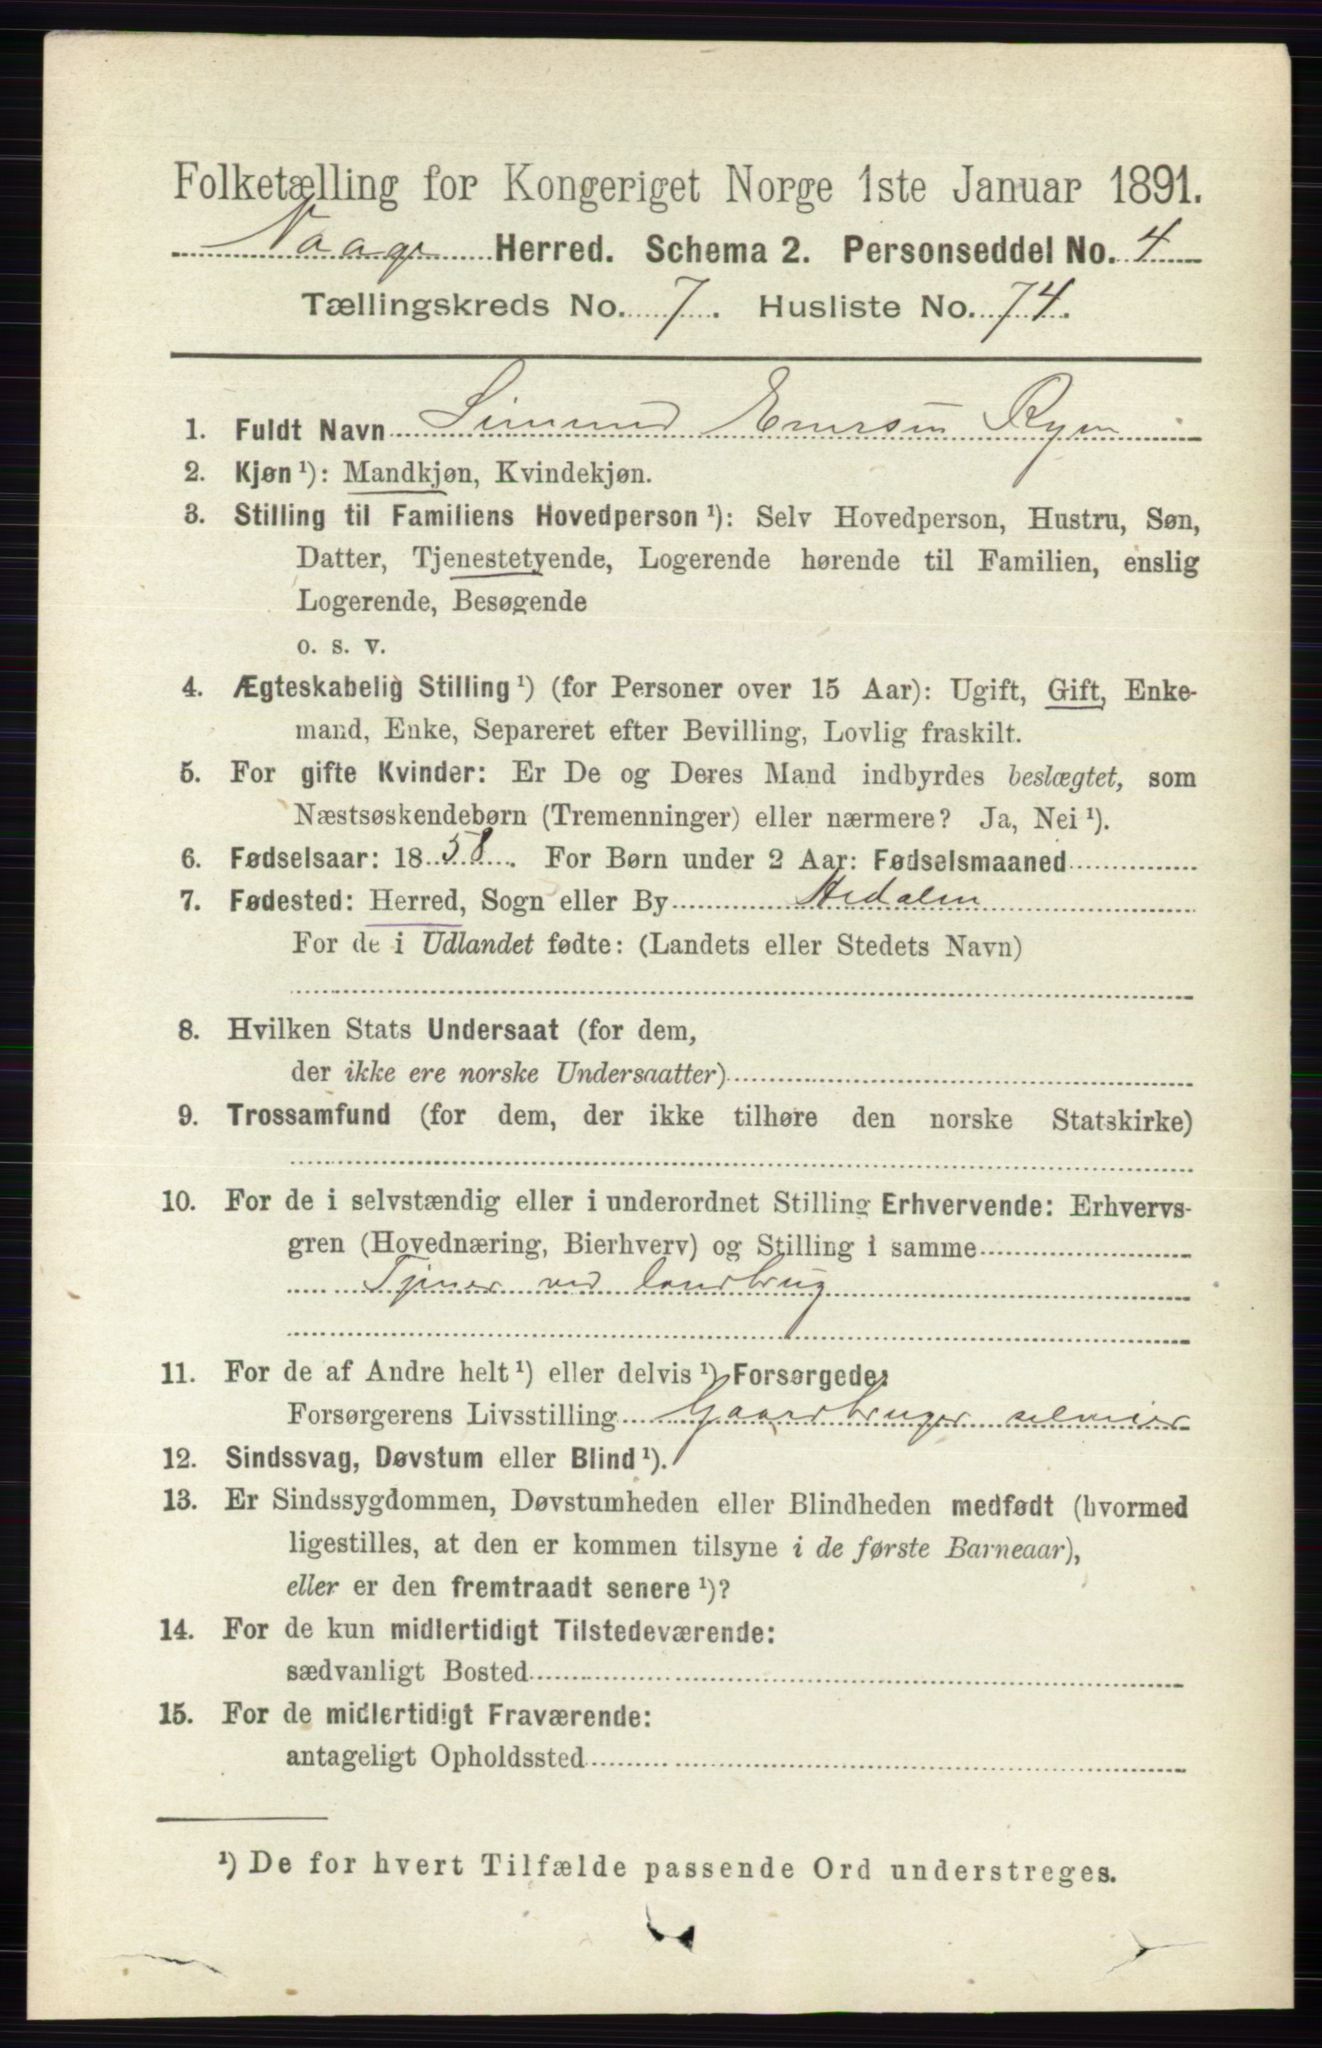 Folketælling for Kongeriget Norge 1ste Januar 1891.
Vaage Herred. Schema 2. Personseddel No. 4
Tællingskreds No. 7. Husliste No. 74.
1. Fuldt Navn Simund
2. Kjøn ¹): Mandkjøn, Kvindekjøn.
3. Stilling til Familiens Hovedperson ¹): Selv Hovedperson, Hustru, Søn,
Datter, Tjenestetyende, Logerende hørende til Familien, enslig
Logerende, Besøgende
o. s. v.
4. Ægteskabelig Stilling ¹) (for Personer over 15 Aar): Ugift, Gift, Enke-
mand, Enke, Separeret efter Bevilling, Lovlig fraskilt.
5. For gifte Kvinder: Er De og Deres Mand indbyrdes beslægtet, som
Næstsøskendebørn (Tremenninger) eller nærmere? Ja, Nei ¹).
6. Fødselsaar: 1858. For Børn under 2 Aar: Fødselsmaaned
7. Fødested: Herred, Sogn eller By Hedalen
For de i Udlandet fødte: (Landets eller Stedets Navn)
8. Hvilken Stats Undersaat (for dem,
der ikke ere norske Undersaatter)
9. Trossamfund (for dem, der ikke tilhøre den norske Statskirke)
10. For de i selvstændig eller i underordnet Stilling Erhvervende: Erhvervs-
gren (Hovednæring, Bierhverv) og Stilling i samme
Tjener ved landbrug
11. For de af Andre helt ¹) eller delvis ¹) Forsørgede:
Forsørgerens Livsstilling Gaardbruger selveier
12. Sindssvag, Døvstum eller Blind ¹).
13. Er Sindssygdommen, Døvstumheden eller Blindheden medfødt (hvormed
ligestilles, at den er kommen tilsyne i de første Barneaar),
eller er den fremtraadt senere ¹)?
14. For de kun midlertidigt Tilstedeværende:
sædvanligt Bosted
15. For de midlertidigt Fraværende:
antageligt Opholdssted
¹) De for hvert Tilfælde passende Ord understreges.